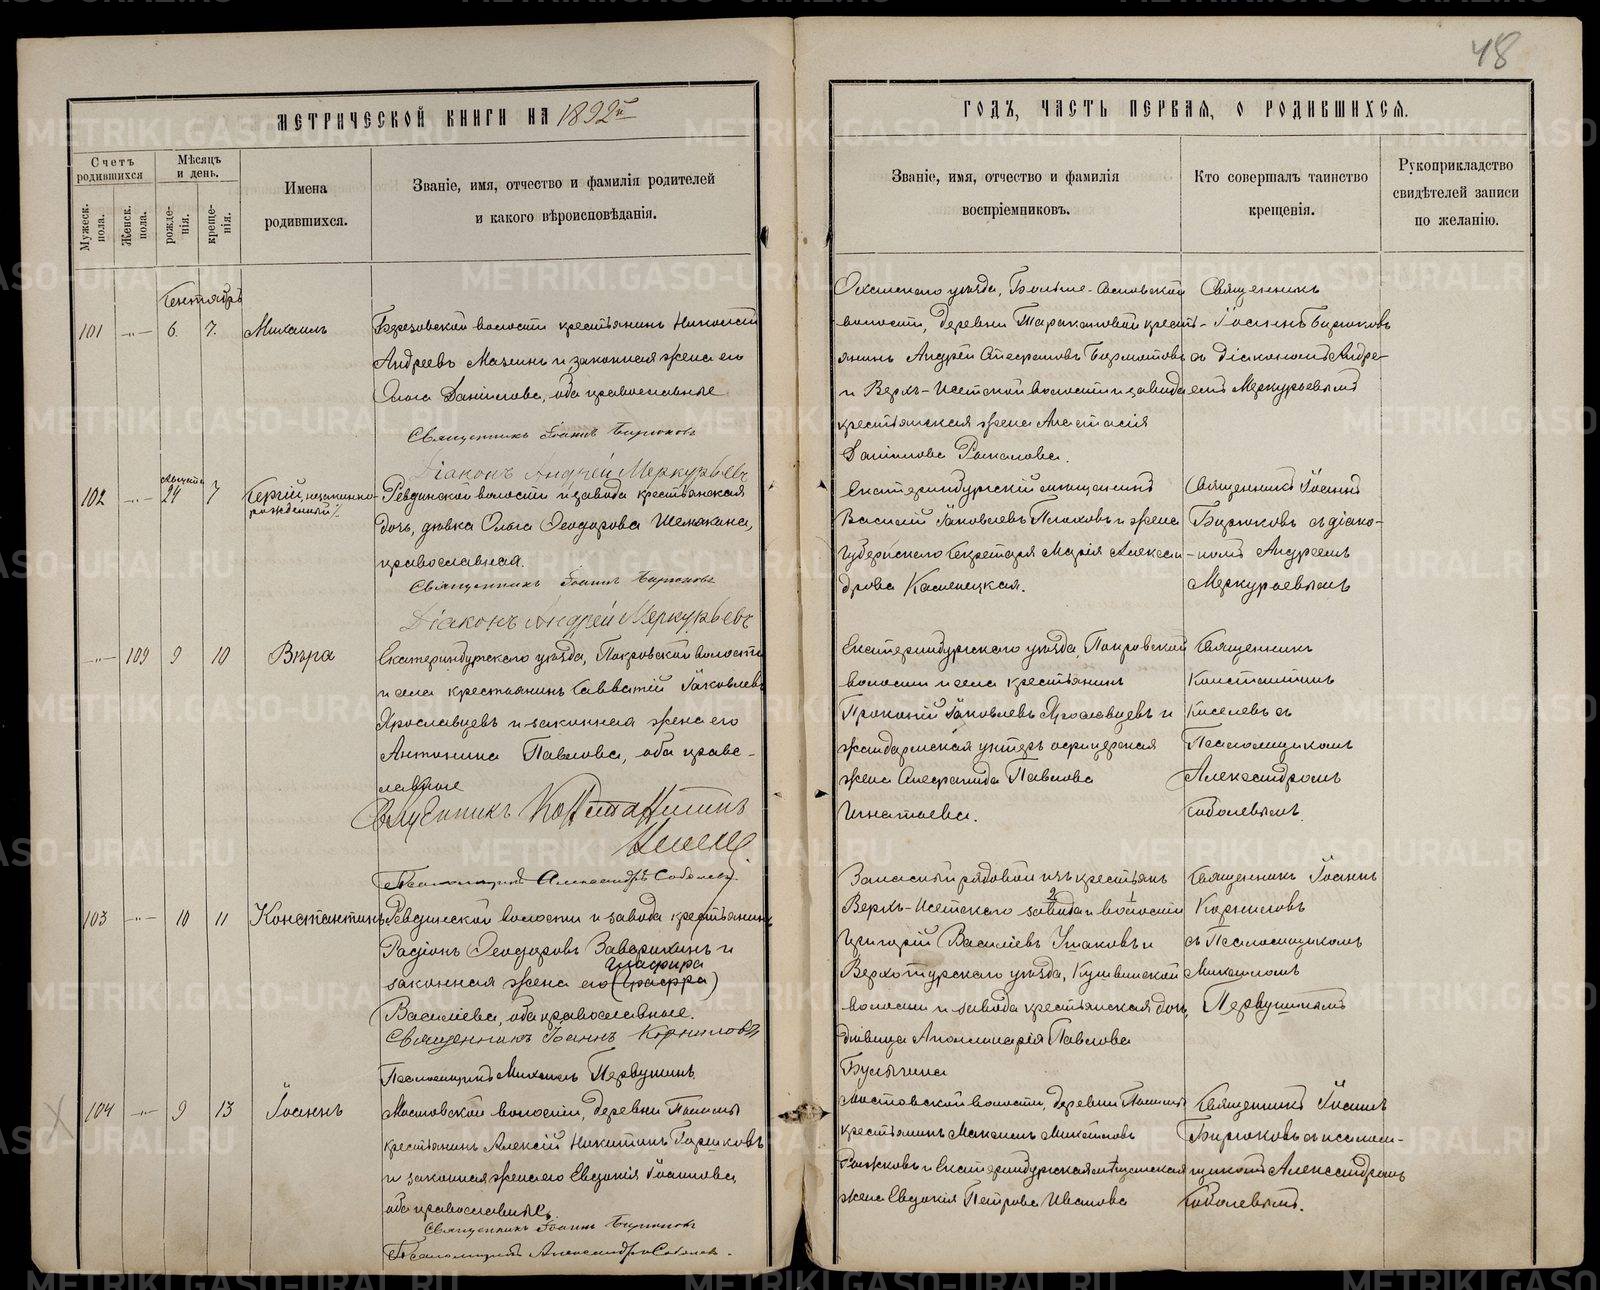 48
МЕТРИЧЕСКОЙ КНИГИ НА 1892й
Счетъ родившихся
Мѣсяцъ и день.
Мужеск. пола.
Женск. пола.
рожде-нія.
креще-нія.
Имена
родившихся.
Званіе, имя, отчество и фамилія родителей
и какого вѣроисповѣданія.
Сентябрь
101 -"- 6. 7. Михаилъ
Березовской волости крестьянинъ Николай
Андреевъ и законная жена его
Ольга Данилова, оба православные
Священникъ Іоаннъ Бирюковъ
Діаконъ Андрей Меркурьевъ
102 -"- августа 24 7 Сергій, незаконно-
рожденный
Ревдинской волости и завода крестьянская
дочь, дѣвка Ольга Ѳеодорова
православная.
Священникъ Іоаннъ Бирюковъ
Діаконъ Андрей Меркурьевъ
-"- 109 9 10 Вѣра
Екатеринбургскаго уѣзда, Покровской волости
и села крестьянинъ Савватій Іаковлевъ
Ярославцевъ и законная жена его
Антонина Павлова, оба право-
славные
Священникъ Константинъ
Псаломщикъ Александръ Соболевъ
103 -"- 10 11 Константинъ
Ревдинской волости и завода крестьянинъ
Родіонъ Ѳеодоровъ и
законная жена его
Васильева, оба православные.
Священникъ Іоаннъ Корниловъ
Псаломщикъ Михаилъ Первушинъ
104 -"- 9 13 Іоаннъ
Мостовской волости, деревни
крестьянинъ Алексій Никитинъ
и законная жена его Евдокія Іоаннова,
оба православные.
Священникъ Іоаннъ Бирюковъ
Псаломщикъ Александръ Соболевъ.
ГОДЪ, ЧАСТЬ ПЕРВАЯ, О РОДИВШИХСЯ.
Званіе, имя, отчество и фамилія
воспріемниковъ.
Кто совершалъ таинство
крещенія.
Рукоприкладство
свидѣтелей записи
по желанію.
Оханскаго уѣзда, Больше-Сосновской
волости, деревни Таракановой кресть-
янинъ Андрей
и Верхъ-Исетской волости и завода
крестьянская жена Анастасія
Данилова
Священникъ
Іоаннъ Бирюковъ
съ діакономъ Андре-
емъ Меркурьевымъ
Екатеринбургскій мѣщанинъ
Василій Іаковлевъ и жена
Губернскаго Секретаря Марія Алексан-
дрова Каменецкая.
Священникъ Іоаннъ
Бирюковъ съ діако-
номъ Андреемъ
Меркурьевымъ
Екатеринбургскаго уѣзда, Покровской
волости и села крестьянинъ
Прокопій Іаковлевъ Ярославцевъ и
жандармская унтеръ офицерская
жена Павлова
Игнатьева.
Священникъ
Константинъ
Киселевъ съ
Псаломщикомъ
Александромъ
Соболевымъ.
Запасный рядовой изъ крестьянъ
Верхъ-Исетскаго завода и волости
Григорій Васильевъ Ушаковъ и
Верхотурскаго уѣзда, Кушвинской
волости и завода крестьянская дочь,
дѣвица Аполлинарія Павлова
Булыгина
Священникъ Іоаннъ
Корниловъ
съ Псаломщикомъ
Михаиломъ
Первушинымъ
Мостовской волости, деревни
крестьянинъ Максимъ
и Екатеринбургская мѣщанская
жена Евдокія Петрова Иванова
Священникъ Іоаннъ
Бирюковъ съ псалом-
щикомъ Александромъ
Соболевымъ.